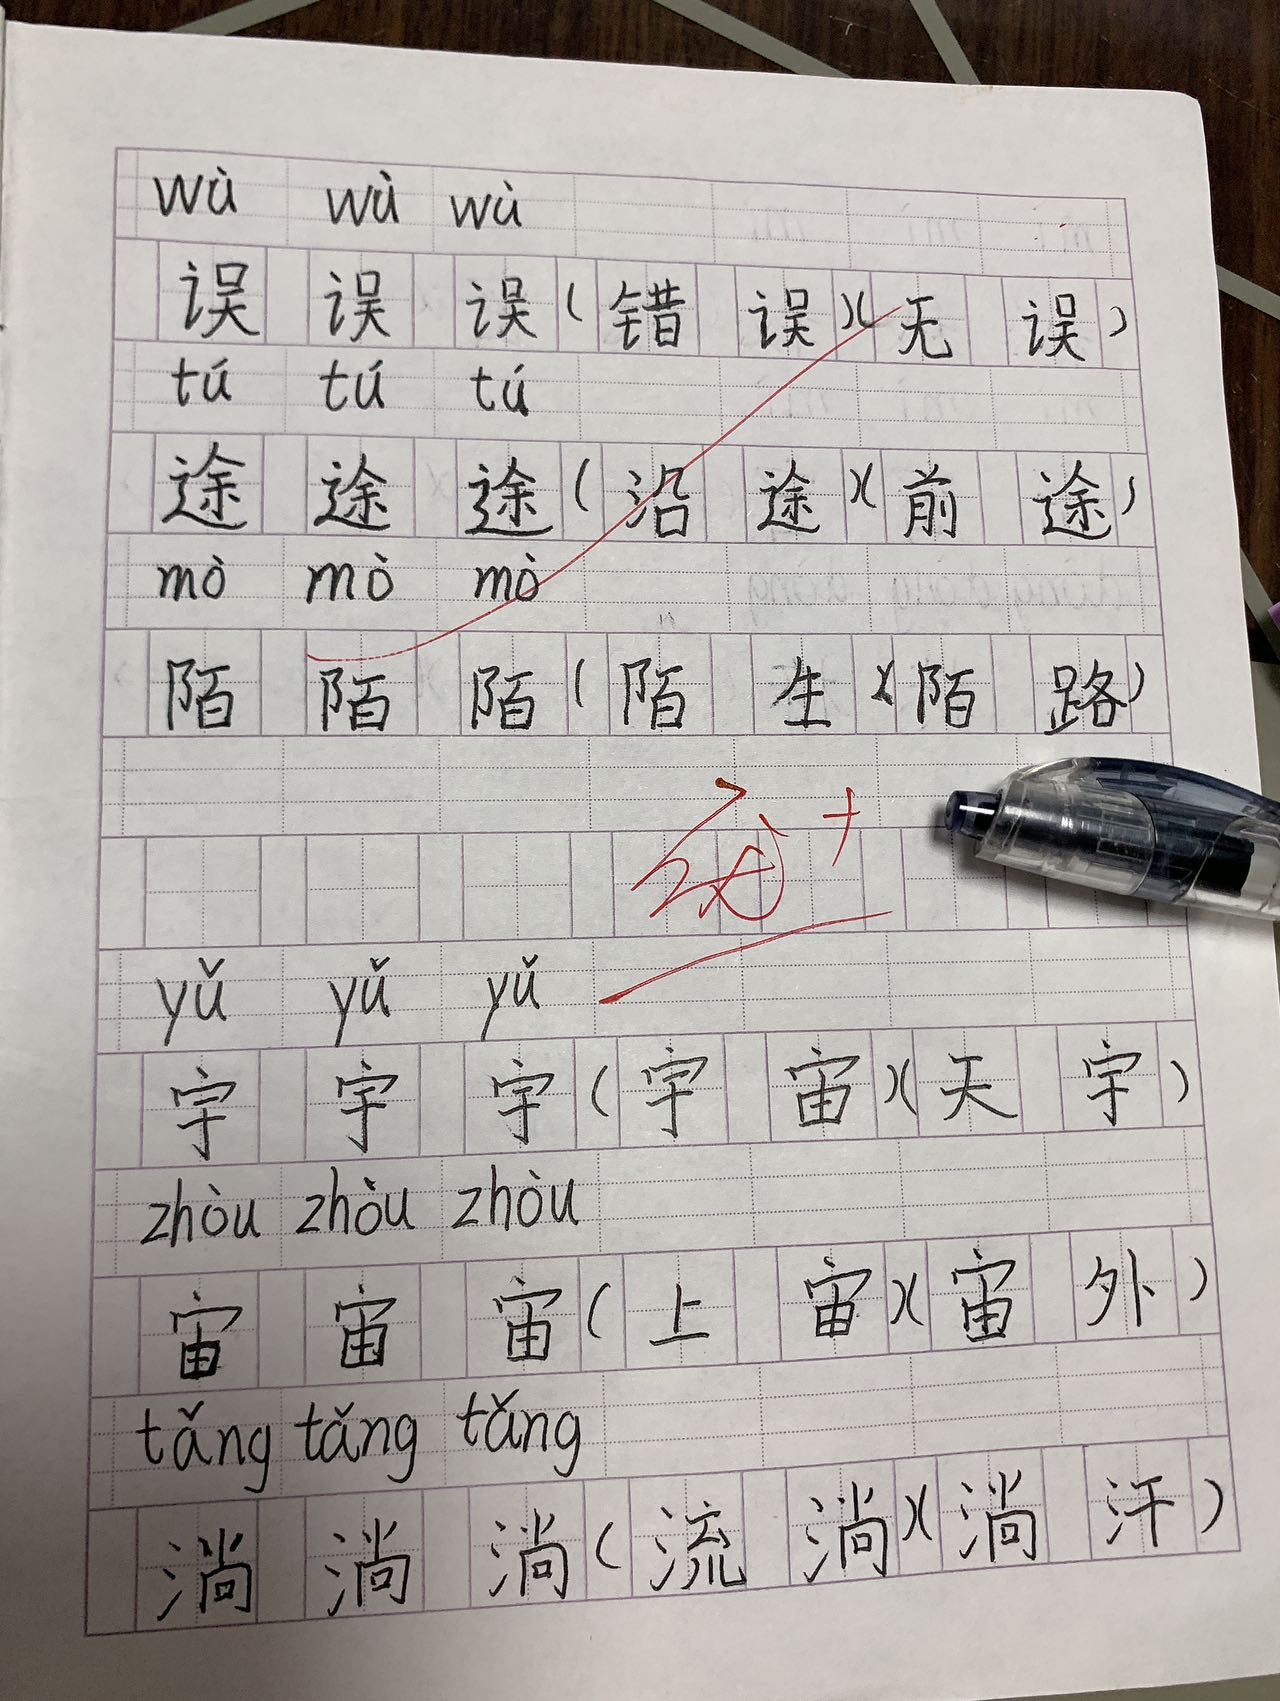 wù wù wù
误 误 误 (错 误)(无 误)
tú tú tú
途 途 途 (沿 途)(前 途)
mò mò mò
陌 陌 陌 (陌 生)(陌 路)
+
yǔ yǔ yǔ
宇 宇 宇 (宇 宙)(天 宇)
zhòu zhòu zhòu
宙 宙 宙 (上 宙)(宙 外)
tǎng tǎng tǎng
淌 淌 淌 (流 淌)(淌 汗)